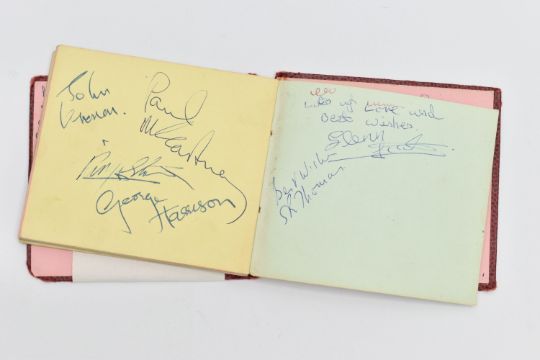 John
Lennon.
Paul
McCartney
Ringo Starr
George
Harrison
Lots of Love and
Best Wishes
Glenn
Best Wishes